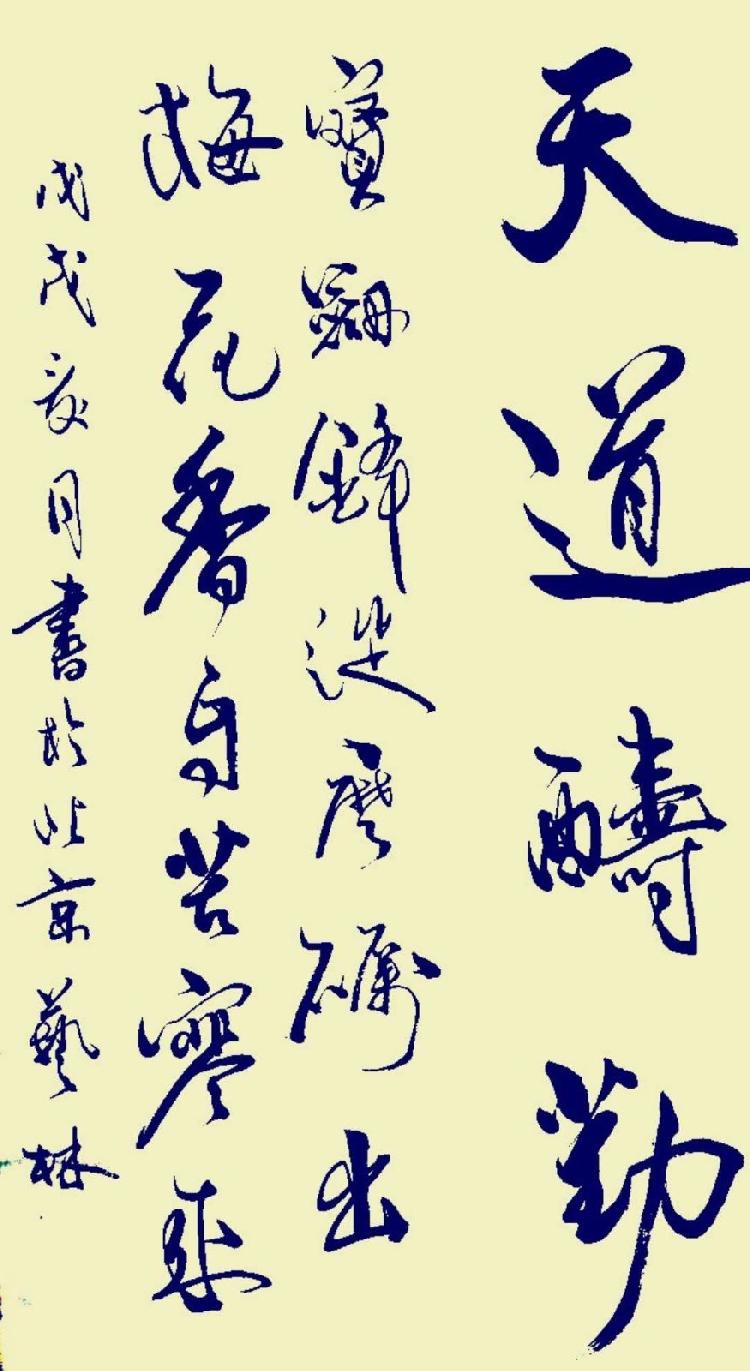 天道醻勤
寶劍鋒從磨礪出
梅花香自苦寒來
戊戌亥月書於北京藝林